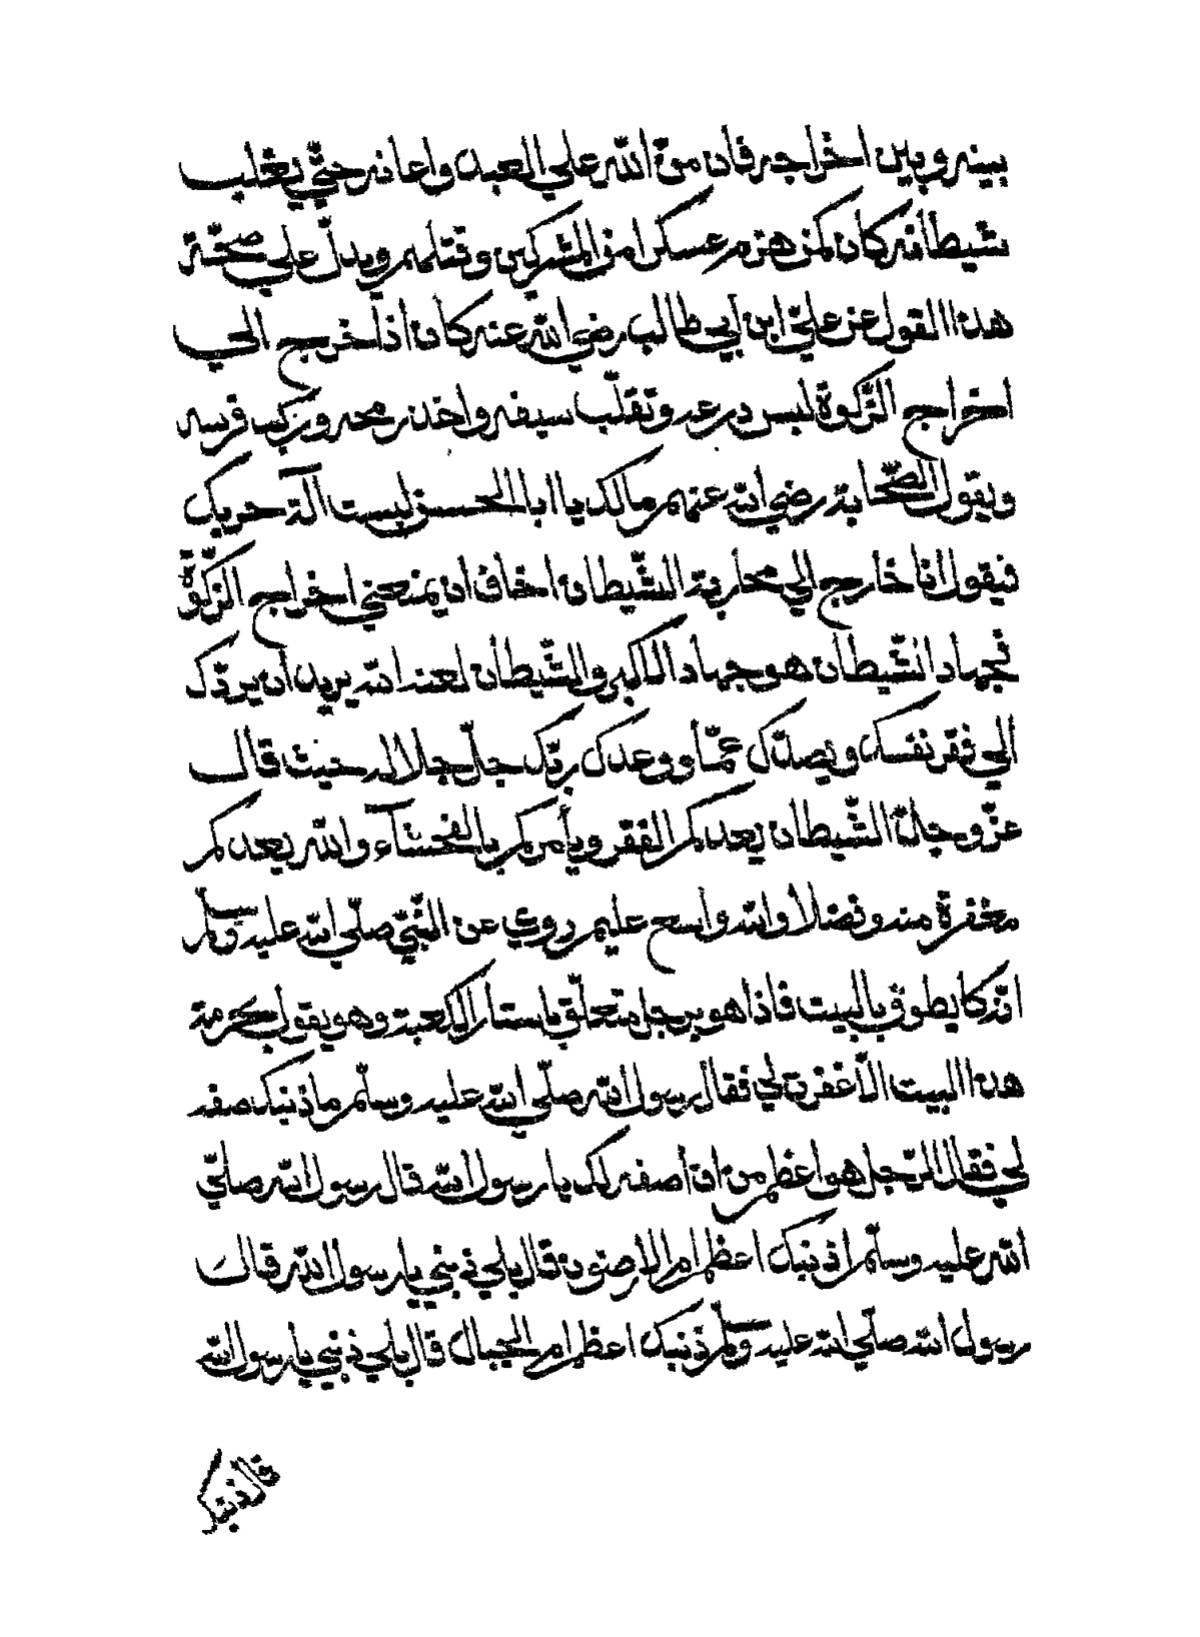 بينه وبين اخراجه فان منّ الله علي العبد واعانه حتّي يغلب
شيطانه كان كمن هزم عسكرا من المشركين وقتلهم ويدلّ علي صحّة
هذا القول عن عليّ ابن ابي طالب رضي الله عنه كان اذا خرج الي
اخراج الزّكوة لبس درعه وتقلّب سيفه واخذ رمحه وركب فرسه
ويقول الصّحابة رضي الله عنهم مالك يا ابا الحسن لبست آلة حربك
فيقول انا خارج الي محاربة الشّيطان اخاف ان يمنعني اخراج الزّكوّة
فجهاد الشّيطان هو جهاد الاكبر والشّيطان لعنه الله يريد ان يردّك
الي فقر نفسك ويصدّك عمّا ووعدك ربّك جلّ جلاله حيث قال
عزّ وجلّ الشّيطان يعدكم الفقر ويأمركم بالفحشآء والله يعدكم
مغفرة منه وفضلا والله واسع عليم روي عن النّبيّ صلّي الله عليه وسلّم
انّه كا يطوف بالبيت فاذا هو برجل متعلّق باستار الكعبة وهو يقول بحرمة
هذا البيت الّا غفرت لي فقال رسول الله صلّي الله عليه وسلّم ما ذنبك صفه
لي فقال الرّجل هو اعظم من ان أصفه لك يا رسول الله قال رسول الله صلّي
الله عليه وسلّم اذنبك اعظم ام الارضون قال بلي ذنبي يا رسول الله قال
رسول الله صلّي الله عليه وسلّم ذنبك اعظم ام الجبال قال بلي ذنبي يا رسول الله
قال ذنبك